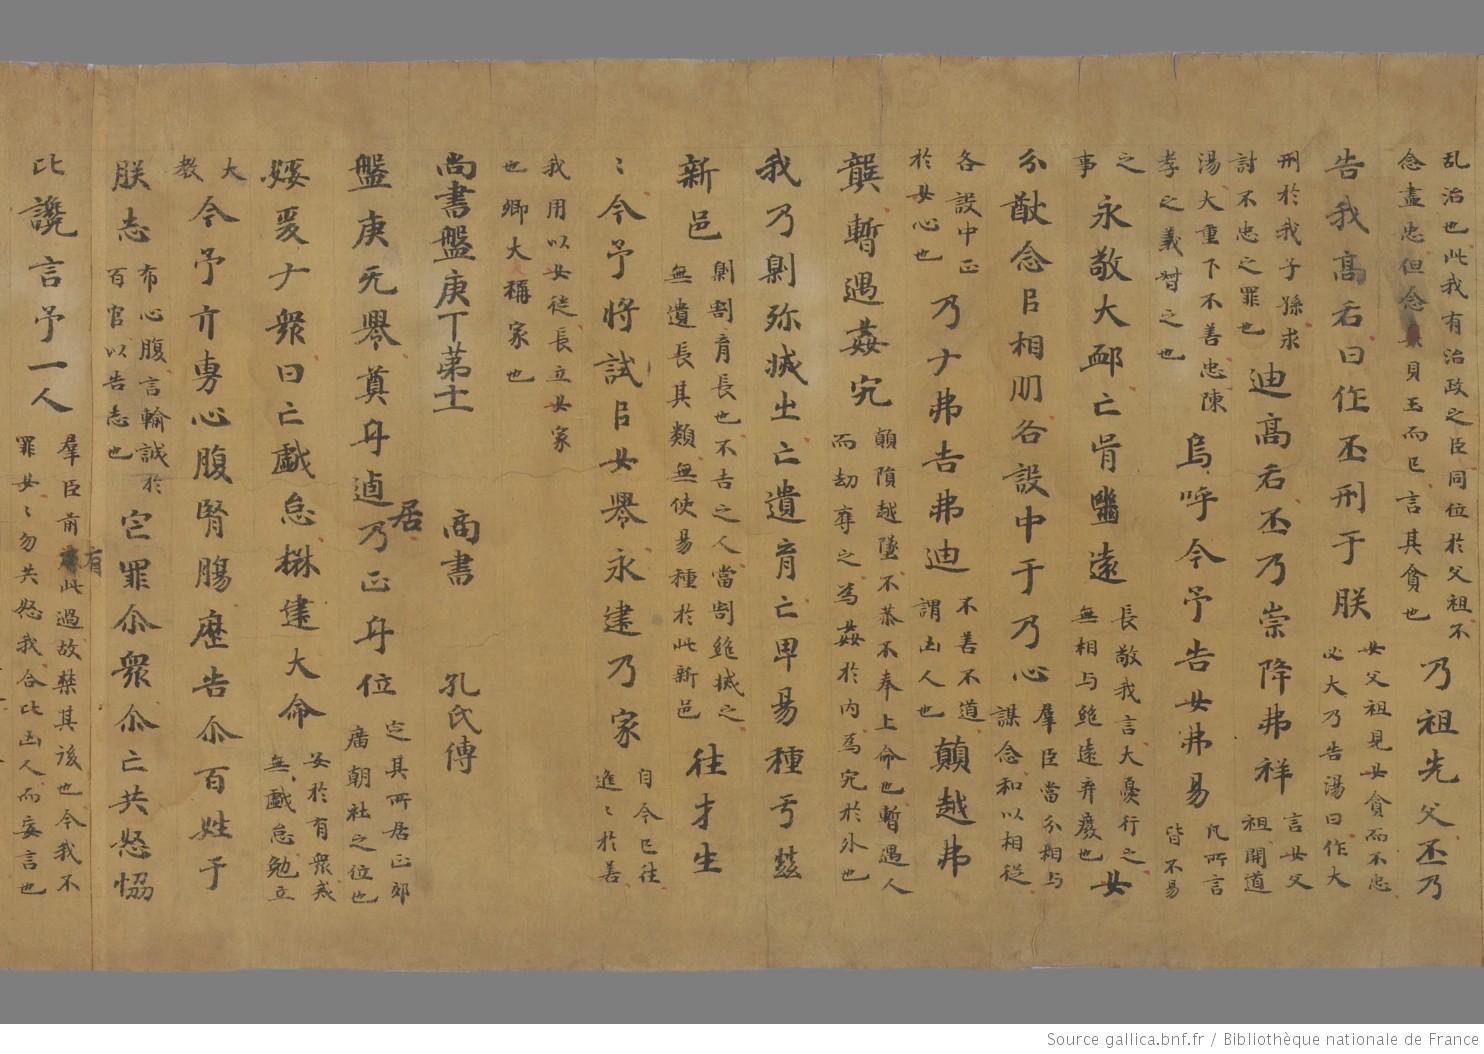 乱治也此我有治政之臣同位於父祖不
念盡忠但念貝玉而已言其貪也
乃祖先父丕乃
告我高后曰作丕刑于朕
女父祖見女貪而不忠
必大乃告湯曰作大
刑於我子孫求
討不忠之罪也
迪高后丕乃崇降弗祥
言女父
祖開道
湯大重下不善忠陳
孝之義督之也
烏呼今予告女弗易
凡所言
皆不易
之
事
永敬大卹亡胥𢇍遠
長敬我言大憂行之
無相与絶遠弃癈也
女
分猷念㠯相朋各設中于乃心
羣臣當分相与
謀念和以相從
各設中正
於女心也
乃ナ弗吉弗迪
不善不道
謂凶人也
顛越弗
龔暫遇姦宄
顛隕越墜不恭不奉上命也暫遇人
而劫奪之為姦於内為宄於外也
我乃劓殄烕㞢亡遺育亡畀易種于兹
新邑
劓割育長也不吉之人當割絶烕之
無遺長其類無使易種於此新邑
往才生
〻今予將試㠯女䙴永建乃家
自今已往
進〻於善
我用以女徙長立女家
也卿大稱家也
尚書盤庚下第十一 商書 孔氏傳
盤庚旡䙴奠厥逌居乃正厥位
定其所居正郊
廣朝社之位也
綏爰ナ衆曰亡戲怠楙建大命
安於有衆戒
無戲怠勉立
大
教
今予亣旉心腹腎腸歷告尒百姓于
朕志
布心腹言輸誠於
百官以告志也
它罪尒衆尒亡共怒恊
比讒言予一人
羣臣前有此過故禁其後也今我不
罪女〻勿共怒我合比凶人而妄言也
Source gallica.bnf.fr / Bibliothèque nationale de France